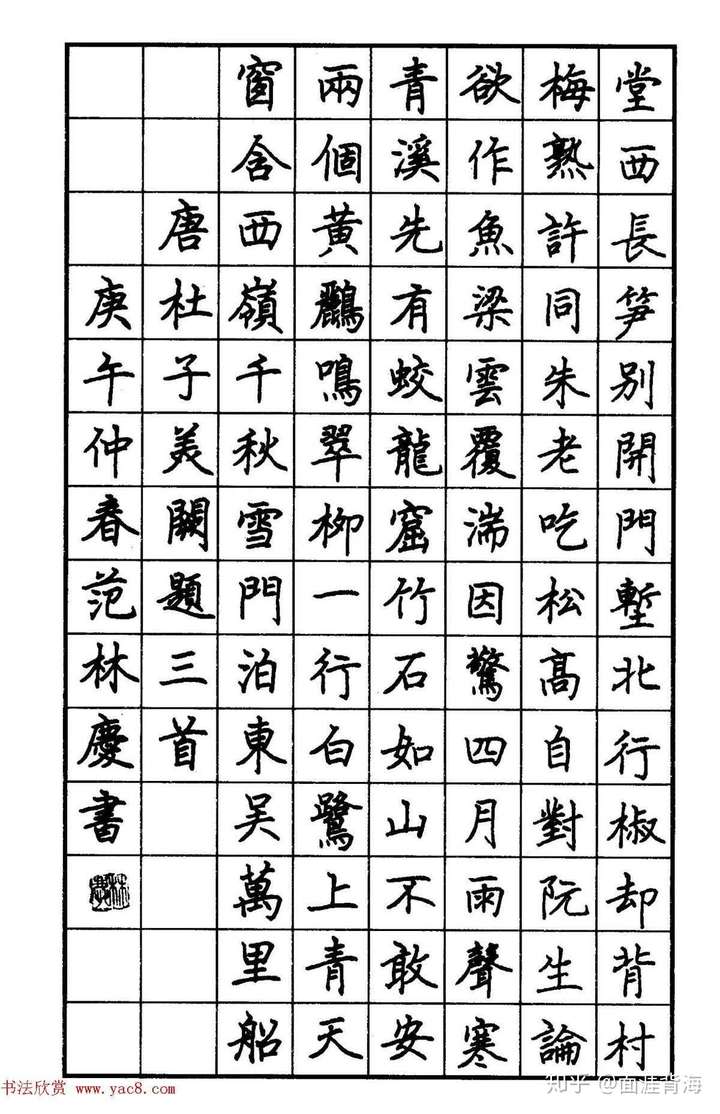 堂西長笋別開門塹北行椒却背村
梅熟許同朱老吃松高自對阮生論
欲作魚梁雲覆湍因驚四月雨聲寒
青溪先有蛟龍窟竹石如山不敢安
兩個黃鸝鳴翠柳一行白鷺上青天
窗含西嶺千秋雪門泊東吳萬里船
唐杜子美闕題三首
庚午仲春范林慶書
书法欣赏 www.yac8.com
知乎 @面涯背海